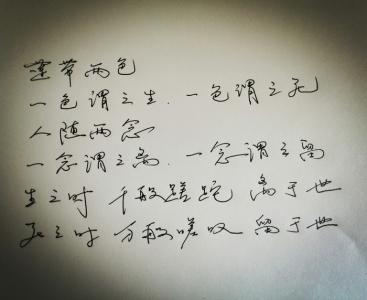 莲带两色
一色谓之生. 一色谓之死
人随两念
一念谓之离. 一念谓之留
生之时 千般蹉跎 离于世
死之时 万般嗟叹 留于世